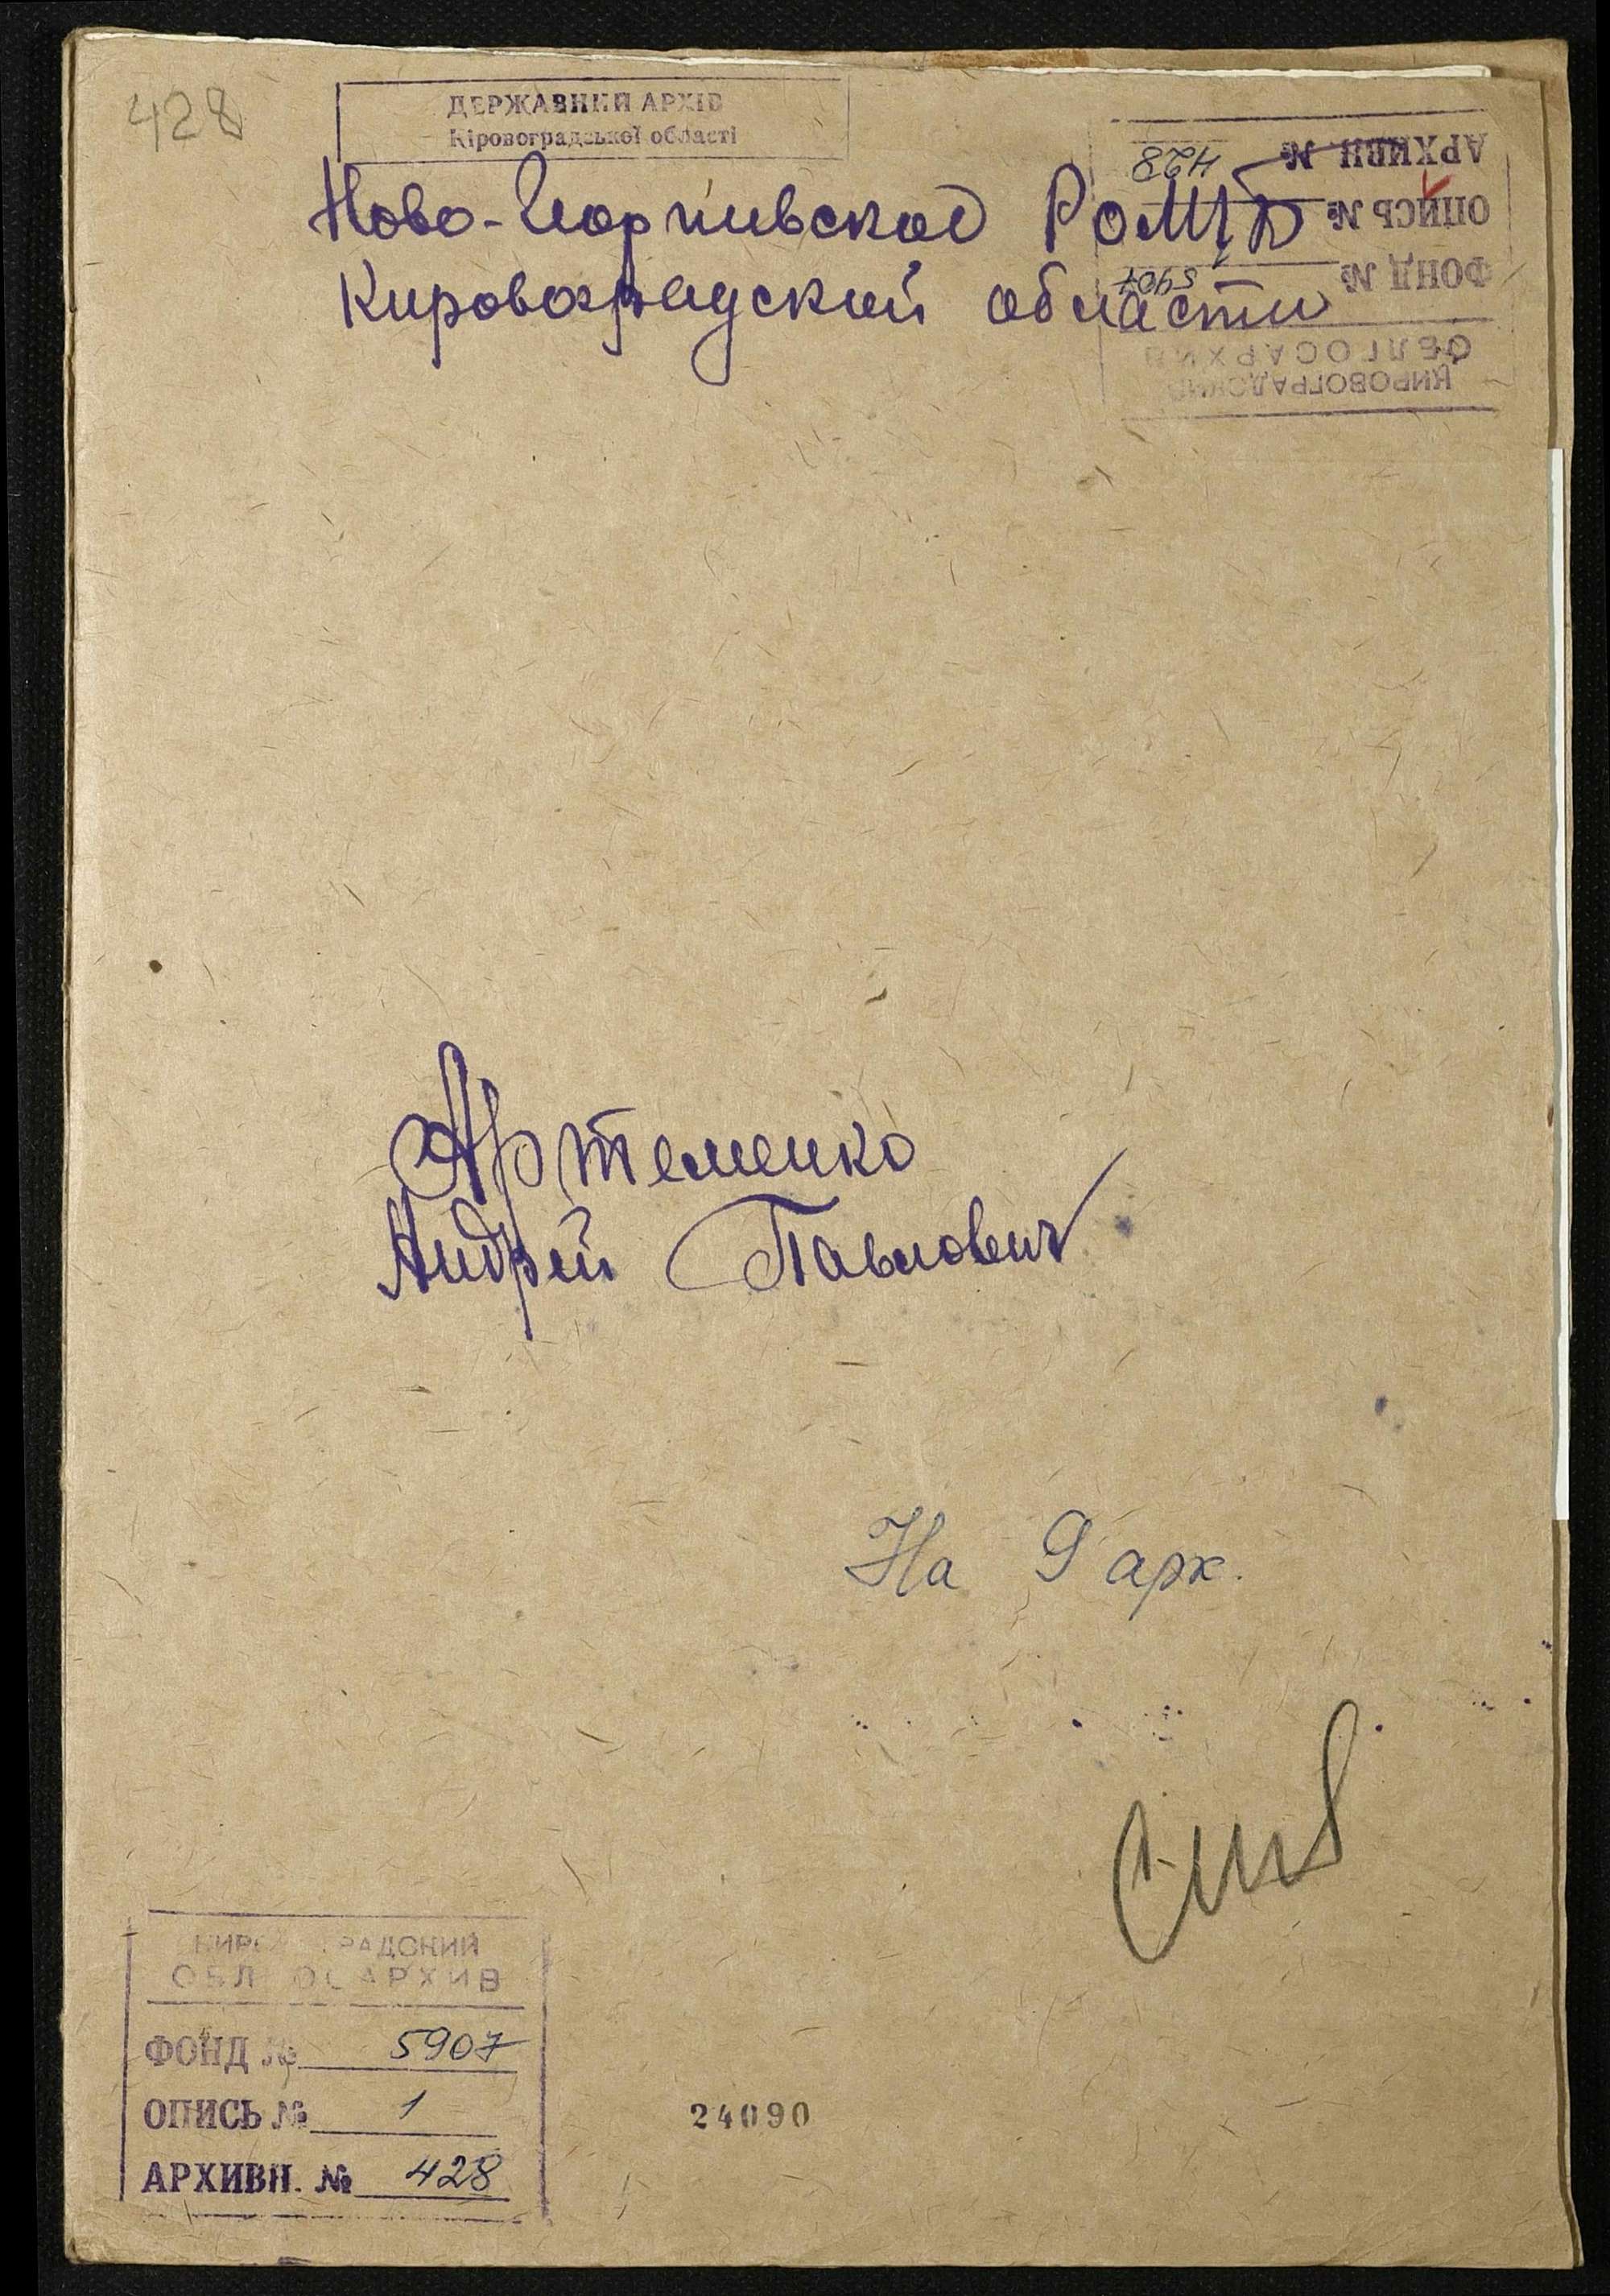 428
ДЕРЖАВНИЙ АРХІВ
Кіровоградської області
Ново-Георгиевское РоМГБ
Кировоградской области
КИРОВОГРАДСКИЙ
ОБЛГОСАРХИВ
ФОНД № 5907
ОПИСЬ №
АРХИВН № 428
Артеменко
Андрей Павлович
На 9 арк.
КИРОВОГРАДСКИЙ
ОБЛГОСАРХИВ
ФОНД № 5907
ОПИСЬ № 1
АРХИВН. № 428
24090